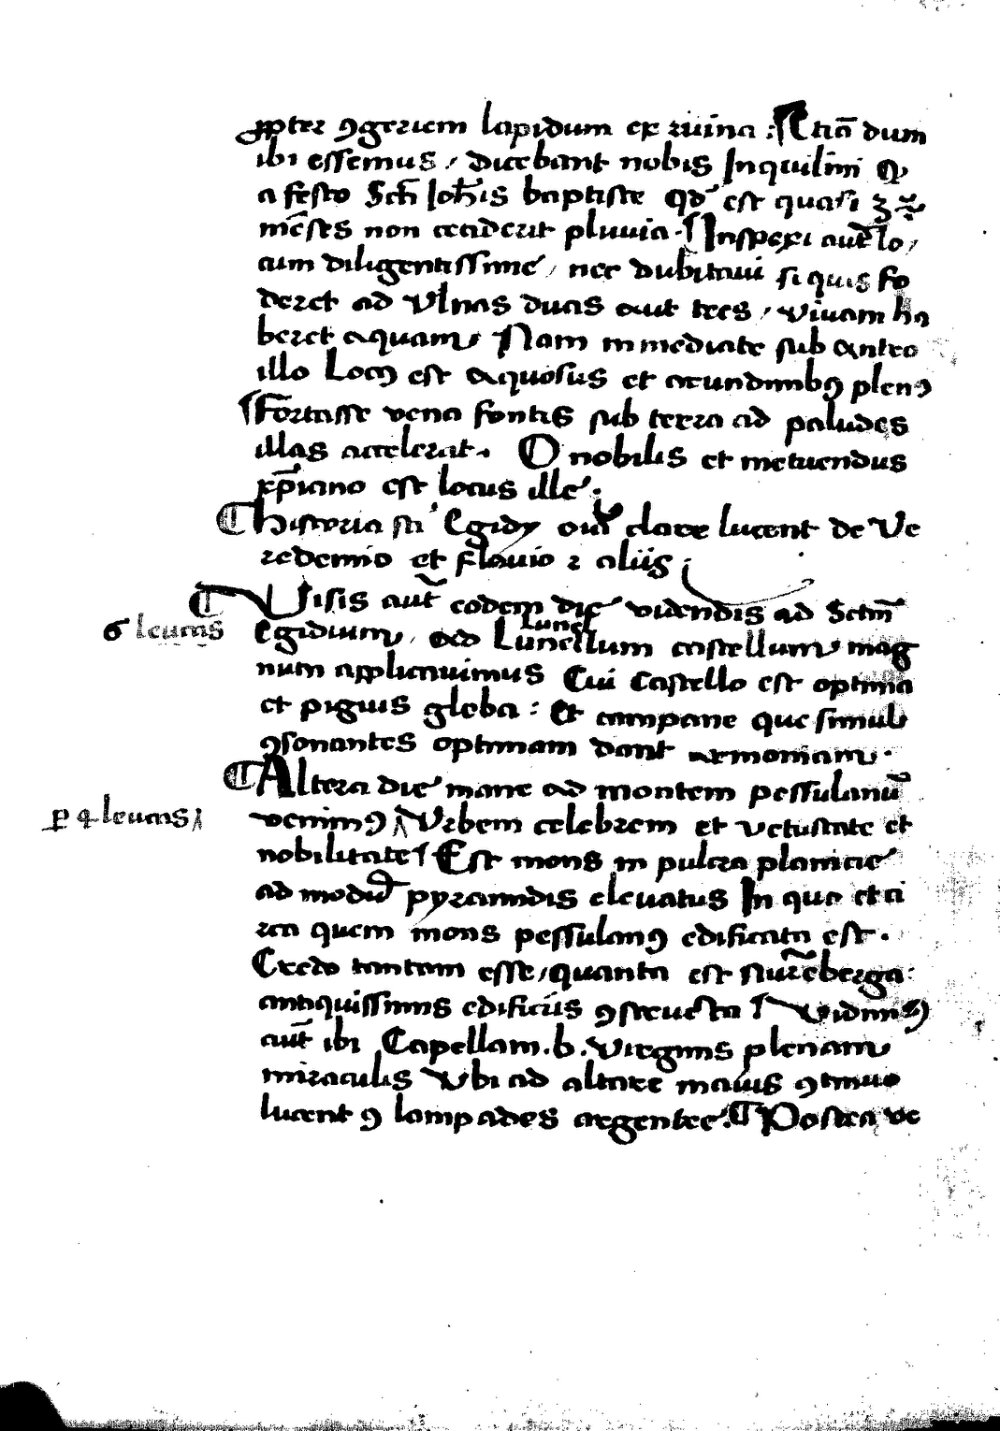 ꝓpter ꝯgeriem lapidum ex ruina : ¶ Etiā dum
ibi essemus / dicebant nobis Inquilini Q
a festo Scti Ioħis baptiste qd' est quasi 3
mēses non ceciderit pluvia · ¶ Inspexi autē lo/
cum diligentissime / nec dubitavi si quis fo
deret ad Vlnas duas aut tres / vivam ha
beret aquam / Nam inmediate sub antro
illo Locꝰ est aquosus et arundinibꝰ plenꝰ
¶ Fortasse vena fontis sub terra ad paludes
illas accelerat · O nobilis et metuendus
xp̄iano est locus ille ·
¶ Historia sti Egidij oīa clare lucent de Ve
redemio et flavio ⁊ aliis
¶ Visis aut̄ eodem die videndis ad Sctm̄
6 leucas
Egidium / ad Lunellum castellum mag
Lunel
num applicavimus Cui Castello est optima
et pigwis gleba : Et campane que simul
ꝯsonantes optimam dant armoniam ·
¶ Altera die mane ad montem pessulanū
p 4 leucas
venimꝰ Vrbem celebrem et vetustate et
nobilitate ¶ Est mons in pulcra planicie
ad modū pyramidis elevatus In quo et ci
rca quem mons pessulanꝰ edificata est ·
Credo tantam esse / quanta est Nurēberga :
antiquissimis edificiis ꝯstructa ¶ Vidimꝰ
aut̄ ibi Capellam · b · Virginis plenam
miraculis Vbi ad altare maius ꝯtinuo
lucent 9 lampades argentee · ¶ Postea ve